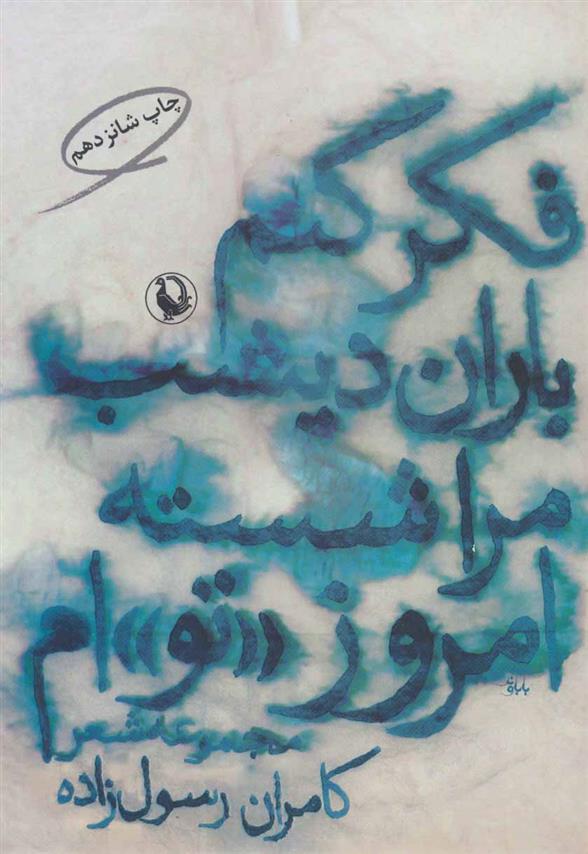 چاپ شانزدهم
فکر کنم
باران دیشب
مرا شسته
امروز «تو»ام
مجموعه شعر
کامران رسول‌زاده